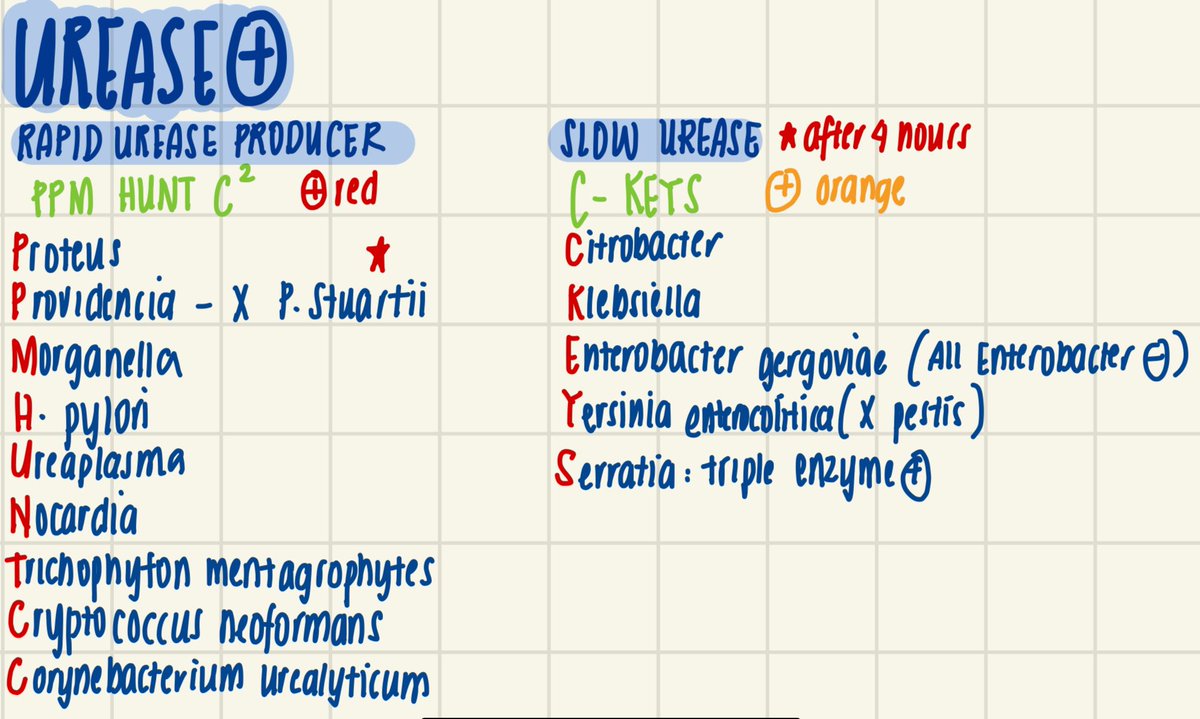 UREASE ⊕
RAPID UREASE PRODUCER
PPM HUNT C² ⊕ red
Proteus ★
Providencia - X P. Stuartii
Morganella
H. pylori
Ureaplasma
Nocardia
Trichophyton mentagrophytes
Cryptococcus neoformans
Corynebacterium urealyticum
SLOW UREASE ★ after 4 hours
C- KEYS ⊕ orange
Citrobacter
Klebsiella
Enterobacter gergoviae (All Enterobacter ⊖)
Yersinia enterocolitica (X pestis)
Serratia: triple enzyme ⊕